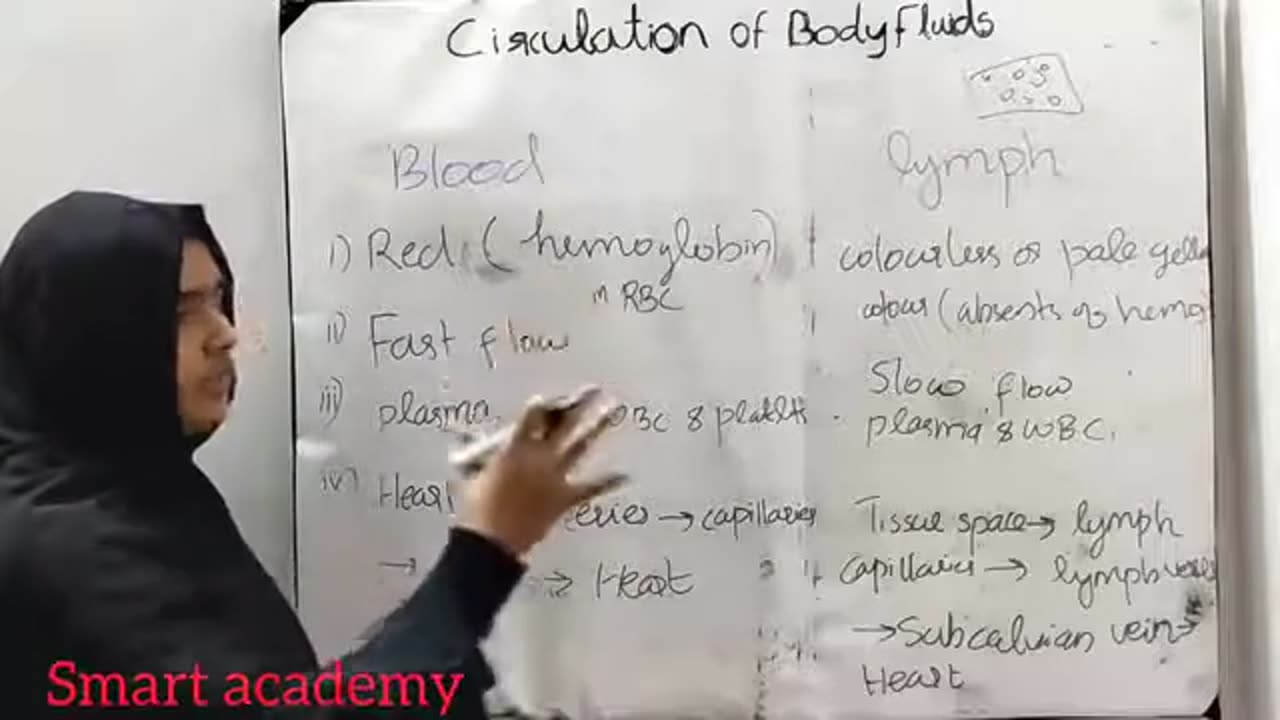 Circulation of Body Fluids
Blood
i) Red (hemoglobin)
in RBC
ii) Fast flow
iii) plasma, BC & platlts
iv) Heart eries → capillaries
→ → Heart
lymph
colourless or pale yell
colour (absents of hemo
Slow flow
plasma & WBC.
Tissue space → lymph
capillaries → lymph vessels
→ Subcalvian vein →
Heart
Smart academy